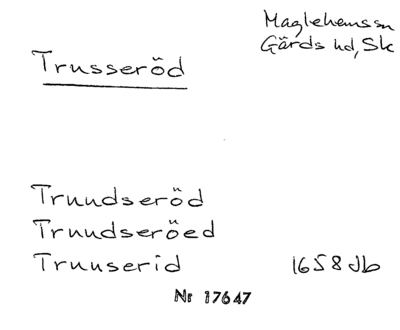 Maglehemssn
Gärds hd, Sk
Trusseröd
Truudseröd
Truudseröed
Truuserid 1658 Jb
Nr 17647